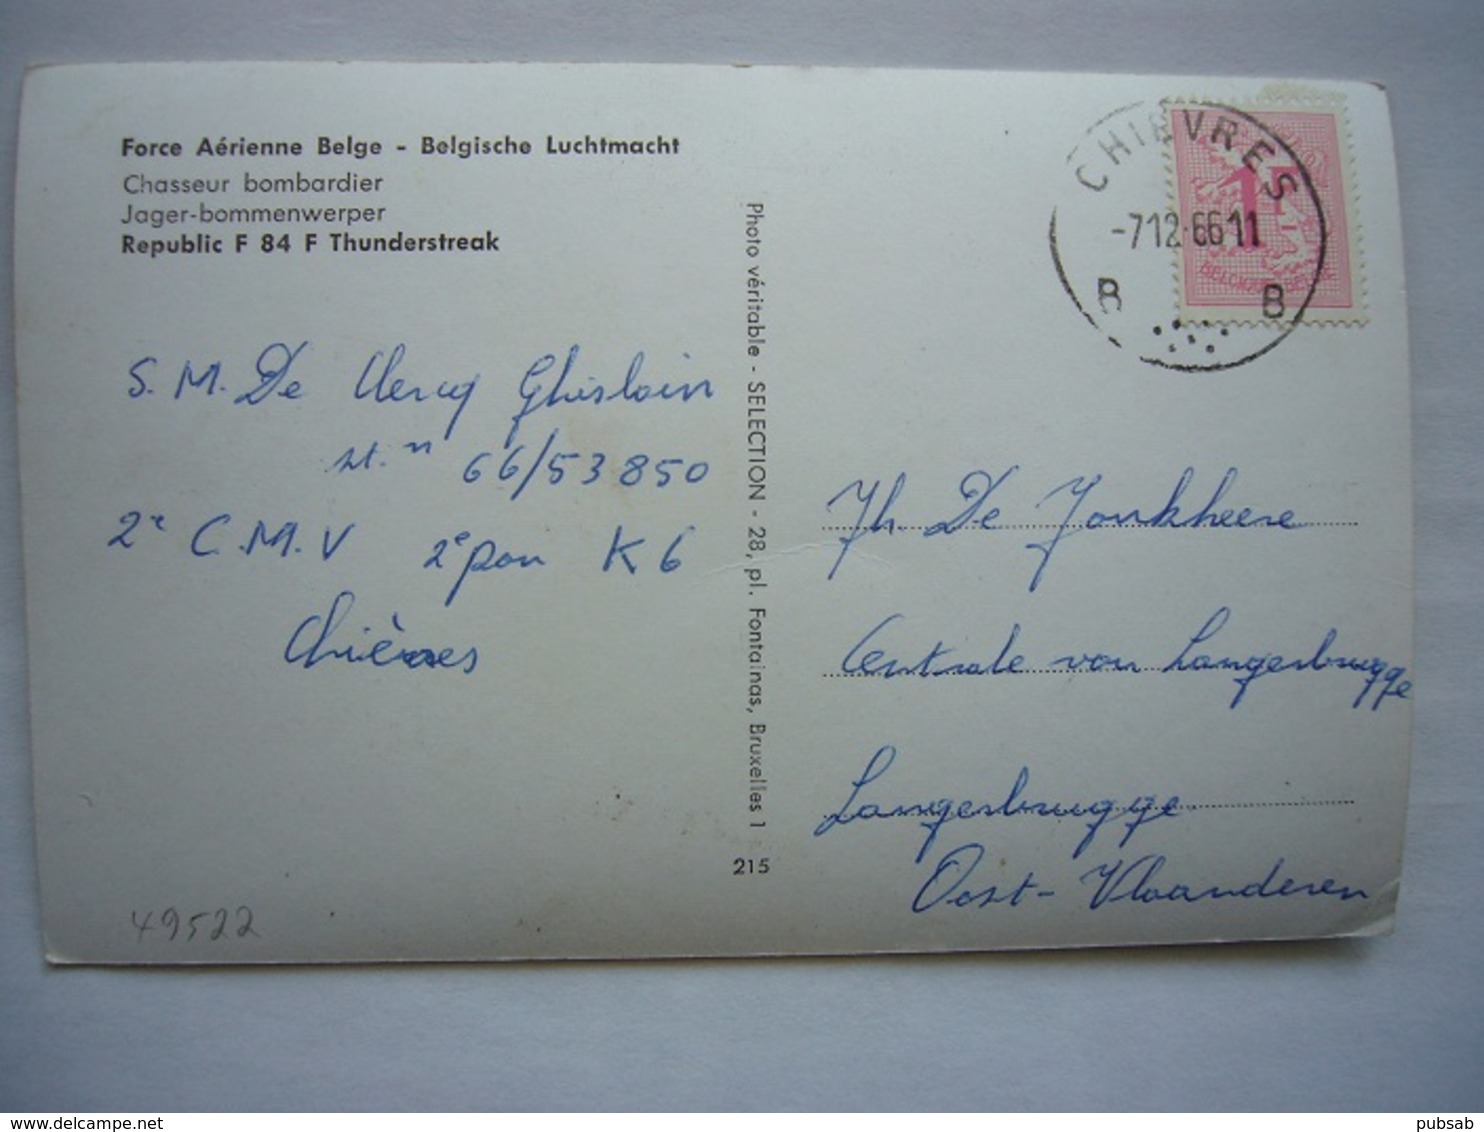 Force Aérienne Belge - Belgische Luchtmacht
Chasseur bombardier
Jager-bommenwerper
Republic F 84 F Thunderstreak
S. M. De Clercq Ghislain
st. n 66/53850
2e C.M.V 2e pon K6
Chièvres
49522
Photo véritable - SELECTION - 28, pl. Fontainas, Bruxelles 1
215
CHIEVRES
-712-6611
B B
1F
BELGIQUE-BELGIE
Jh. De Jonkheere
Centrale van Langerbrugge
Langerbrugge
Oost-Vlaanderen
delcampe.net
pubsab